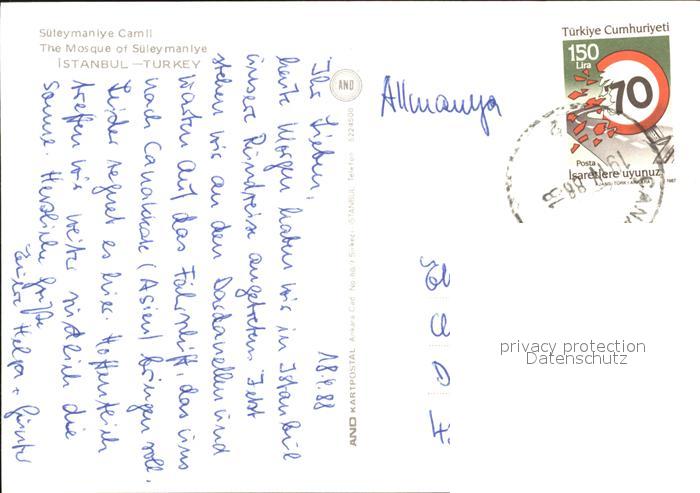 Süleymaniye Camii
The Mosque of Süleymaniye
İSTANBUL — TURKEY
18.9.88
Ihr Lieben,
heute Morgen haben wir in Istanbul
unsere Rundreise angetreten. Jetzt
stehen wir an den Dardanellen und
warten auf das Fährschiff, das uns
nach Canakkale (Asien) bringen soll.
Leider regnet es hier. Hoffentlich
treffen wir weiter südlich die
Sonne. Herzliche Grüße
Helga + Günter
AND
AND KARTPOSTAL Ankara Cad. No. İSTANBUL Telefon: 5224500
Allmanya
Türkiye Cumhuriyeti
150
Lira
70
Posta
İşaretlere uyunuz
1987
ÇANA
88
privacy protection
Datenschutz